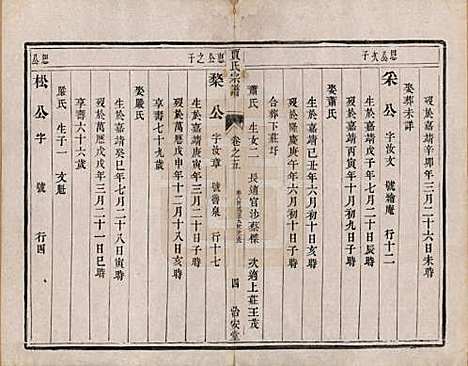 歿於嘉靖辛卯年三月二十六日未時
娶 葬 未詳
思公次子
采公 字汝文 號繪庵 行十二
生於嘉靖戊子年七月二日子時
歿於嘉靖丙寅年十月初九日子時
娶蕭氏
生於嘉靖己丑年六月初六日辰時
歿於隆慶庚午年六月初十日丑時
合葬下莊圩
蕭氏 生女二 長適官沙蔡傑 次適上莊王茂
賈氏宗譜
卷之五
四
治安堂
恵公之子
棃公 字汝章 號嗇泉 行十七
生於嘉靖庚寅年三月十八日辰時
歿於萬曆戊申年十二月十八日亥時
享壽七十九歲
娶嚴氏
生於嘉靖癸巳年七月二十八日寅時
歿於萬曆戊戌年三月二十一日巳時
享壽六十六歲
嚴氏 生子一 文魁
松公 字 號 行四